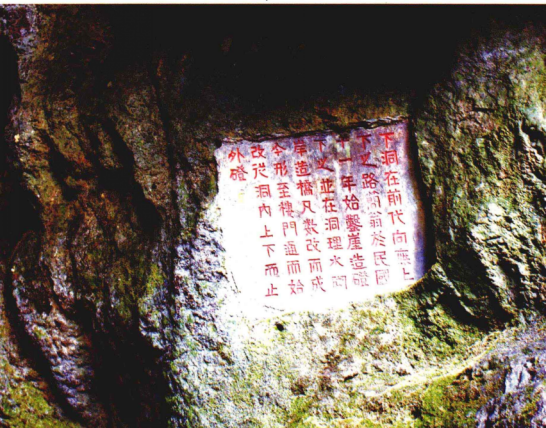 下洞在前代向應上
下之路問前翁於民國
十一年始鑿崖造磴
下之並在洞理水閣
岸造橋凡數改而成
今形至樓門通而始
改從洞內上下而止
外磴